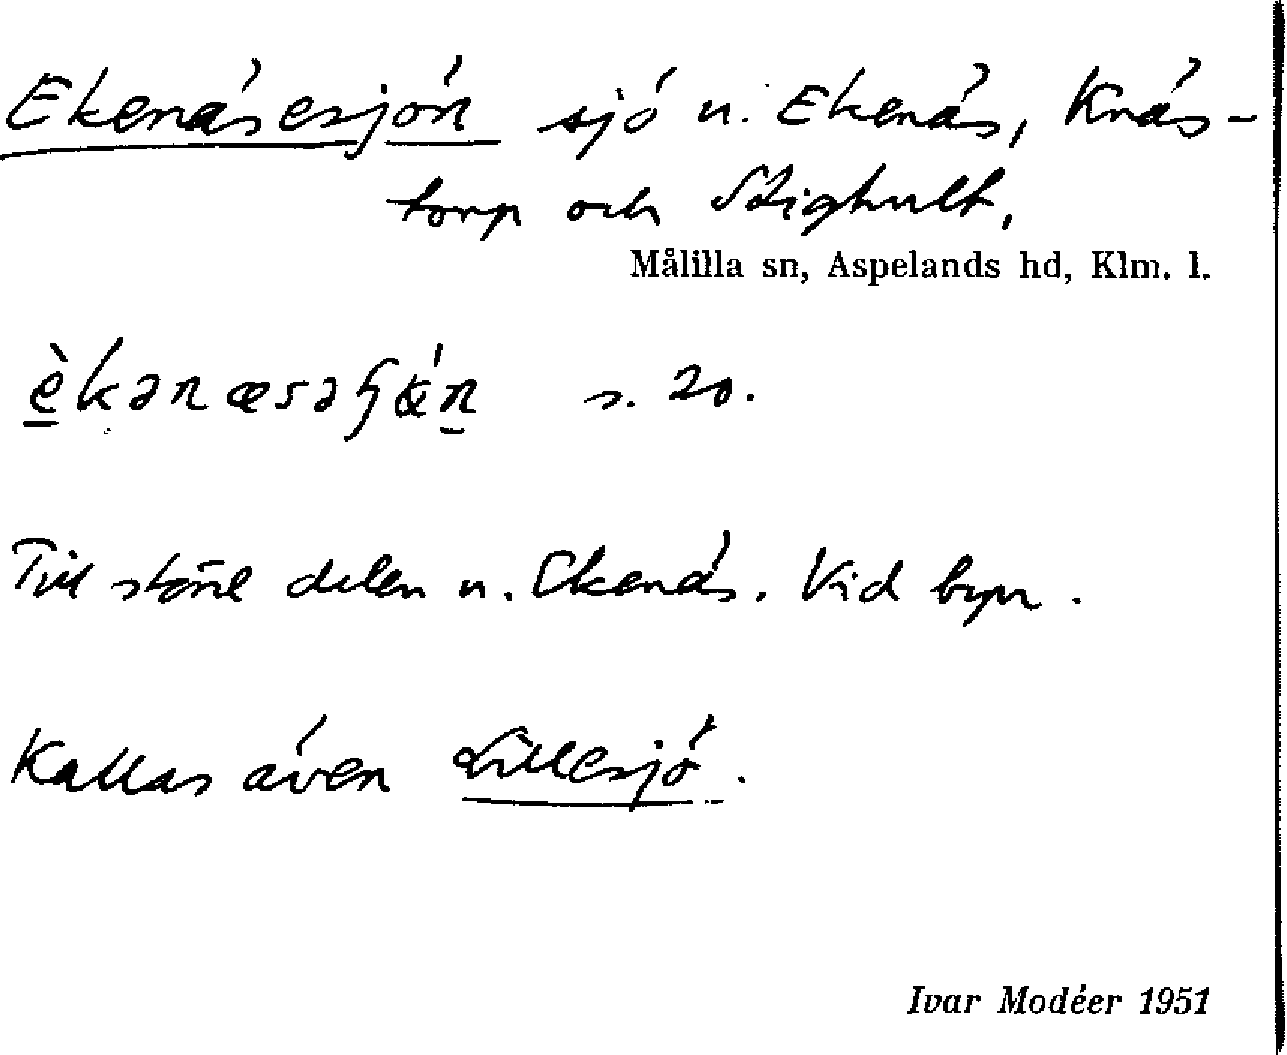 Ekenäsesjön sjö u. Ekenäs, Knäs-
torp och Stighult,
Målilla sn, Aspelands hd, Klm. l.
s. 20.
Till större delen u. Ekenäs. Vid byn.
Kallas även Lillesjö.
Ivar Modéer 1951